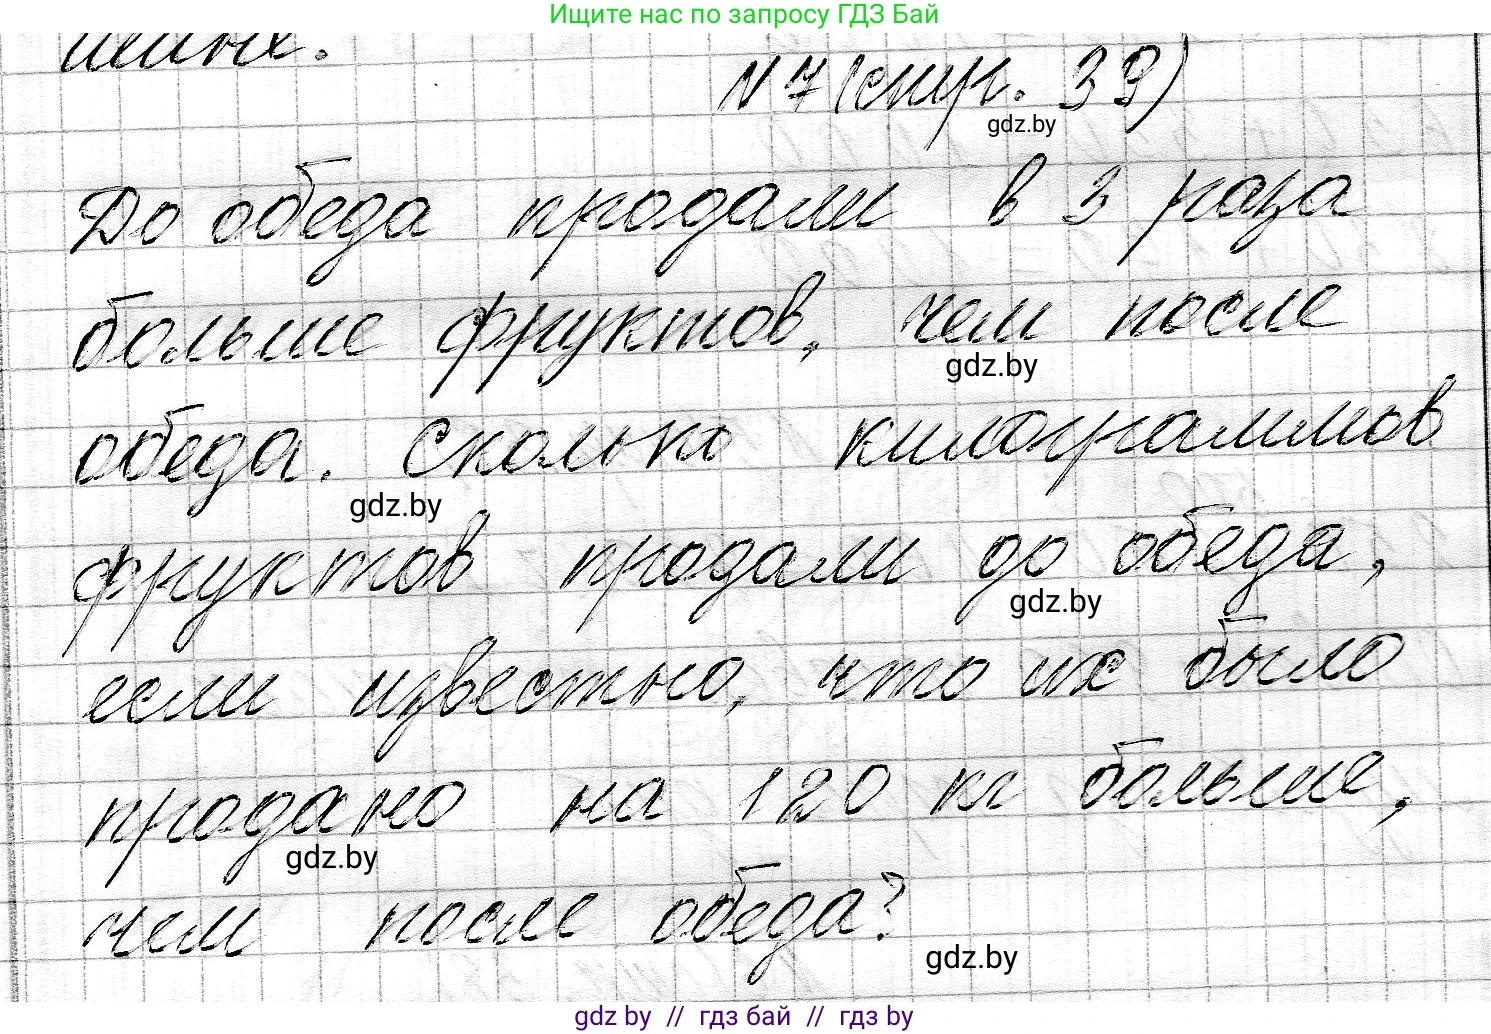 Ищите нас по запросу ГДЗ Бай
шине.
№7 (стр. 39)
gdz.by
До обеда продали в 3 раза
больше фруктов, чем после
gdz.by
обеда. Сколько килограммов
gdz.by
фруктов продали до обеда,
gdz.by
если известно, что их было
продано на 120 кг больше,
gdz.by
чем после обеда?
gdz.by
gdz by // гдз бай // гдз by